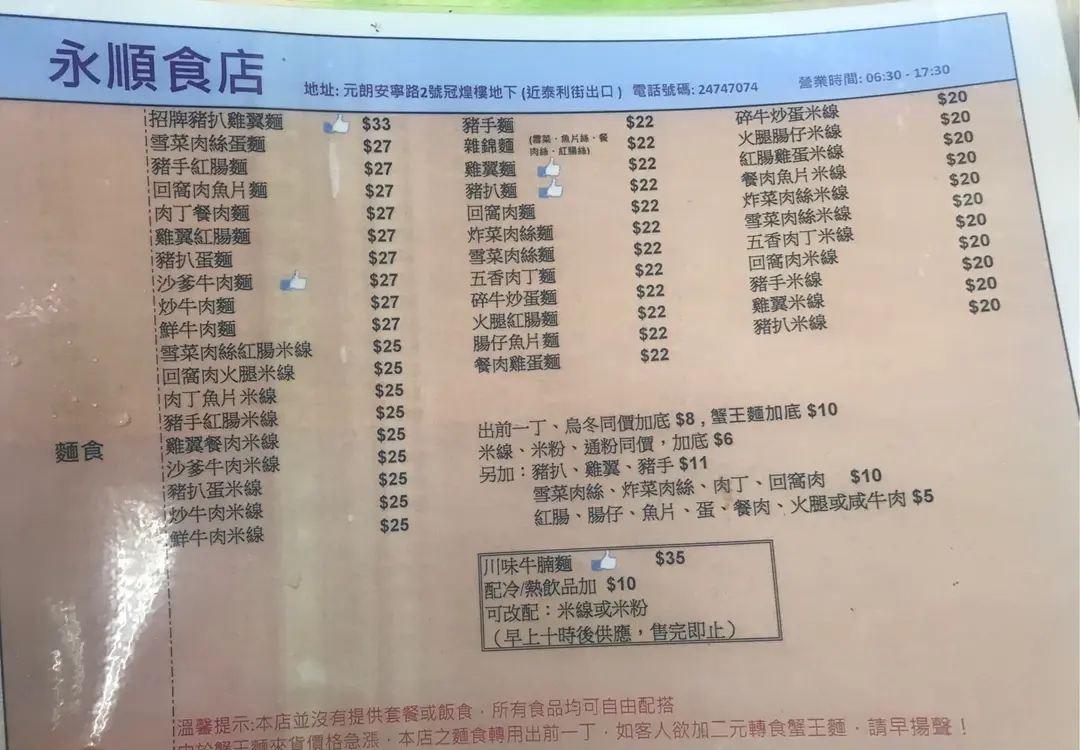 永順食店
地址: 元朗安寧路2號冠煌樓地下 (近泰利街出口 ) 電話號碼: 24747074
營業時間: 06:30 - 17:30
麵食
招牌豬扒雞翼麵 $33
雪菜肉絲蛋麵 $27
豬手紅腸麵 $27
回窩肉魚片麵 $27
肉丁餐肉麵 $27
雞翼紅腸麵 $27
豬扒蛋麵 $27
沙爹牛肉麵 $27
炒牛肉麵 $27
鮮牛肉麵 $27
雪菜肉絲紅腸米線 $25
回窩肉火腿米線 $25
肉丁魚片米線 $25
豬手紅腸米線 $25
雞翼餐肉米線 $25
沙爹牛肉米線 $25
豬扒蛋米線 $25
炒牛肉米線 $25
鮮牛肉米線 $25
豬手麵 $22
雜錦麵 (雪菜、魚片絲、餐肉絲、紅腸絲) $22
雞翼麵 $22
豬扒麵 $22
回窩肉麵 $22
炸菜肉絲麵 $22
雪菜肉絲麵 $22
五香肉丁麵 $22
碎牛炒蛋麵 $22
火腿紅腸麵 $22
腸仔魚片麵 $22
餐肉雞蛋麵 $22
碎牛炒蛋米線 $20
火腿腸仔米線 $20
紅腸雞蛋米線 $20
餐肉魚片米線 $20
炸菜肉絲米線 $20
雪菜肉絲米線 $20
五香肉丁米線 $20
回窩肉米線 $20
豬手米線 $20
雞翼米線 $20
豬扒米線 $20
出前一丁、烏冬同價加底 $8 , 蟹王麵加底 $10
米線、米粉、通粉同價，加底 $6
另加：豬扒、雞翼、豬手 $11
雪菜肉絲、炸菜肉絲、肉丁、回窩肉 $10
紅腸、腸仔、魚片、蛋、餐肉、火腿或咸牛肉 $5
川味牛腩麵 $35
配冷/熱飲品加 $10
可改配：米線或米粉
（早上十時後供應，售完即止）
溫馨提示:本店並沒有提供套餐或飯食，所有食品均可自由配搭
由於蟹王麵來貨價格急漲，本店之麵食轉用出前一丁，如客人欲加二元轉食蟹王麵，請早揚聲！